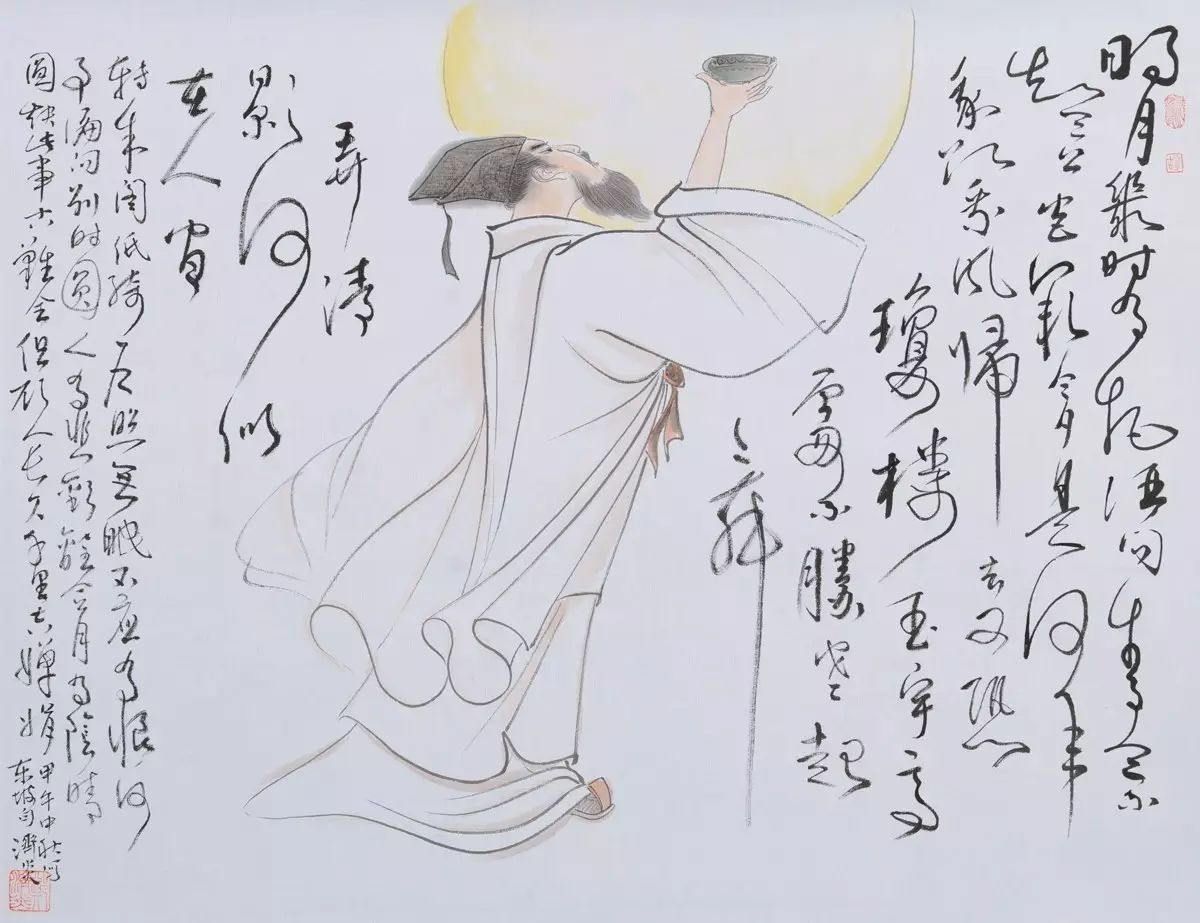 明月幾时有把酒问青天不
知天上宫阙今夕是何年
我欲乘风歸
去又恐
瓊樓玉宇高
處不勝寒起
舞
弄清
影何似
在人间
转朱阁低绮户照無眠不应有恨何
事偏向别时圆人有悲歡離合月有陰晴
圆缺此事古難全但願人长久千里共嬋娟
甲午中秋
东坡句